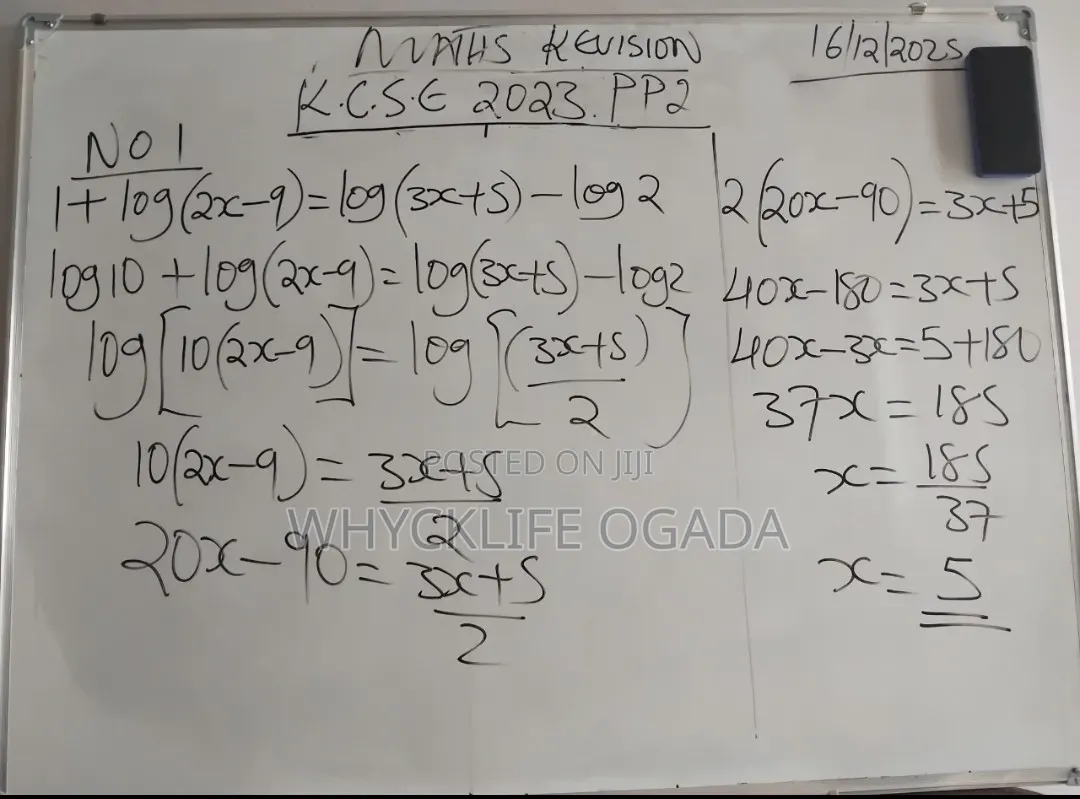 MATHS REVISION
16/12/2025
K.C.S.E 2023. PP2
NO 1
1 + log(2x-9) = log(3x+5) - log 2
log10 + log(2x-9) = log(3x+5) - log2
log[10(2x-9)] = log[(3x+5)/2]
10(2x-9) = 3x+5/2
20x-90 = 3x+5/2
2(20x-90) = 3x+5
40x-180 = 3x+5
40x-3x = 5+180
37x = 185
x = 185/37
x = 5
POSTED ON JIJI
WHYCKLIFE OGADA